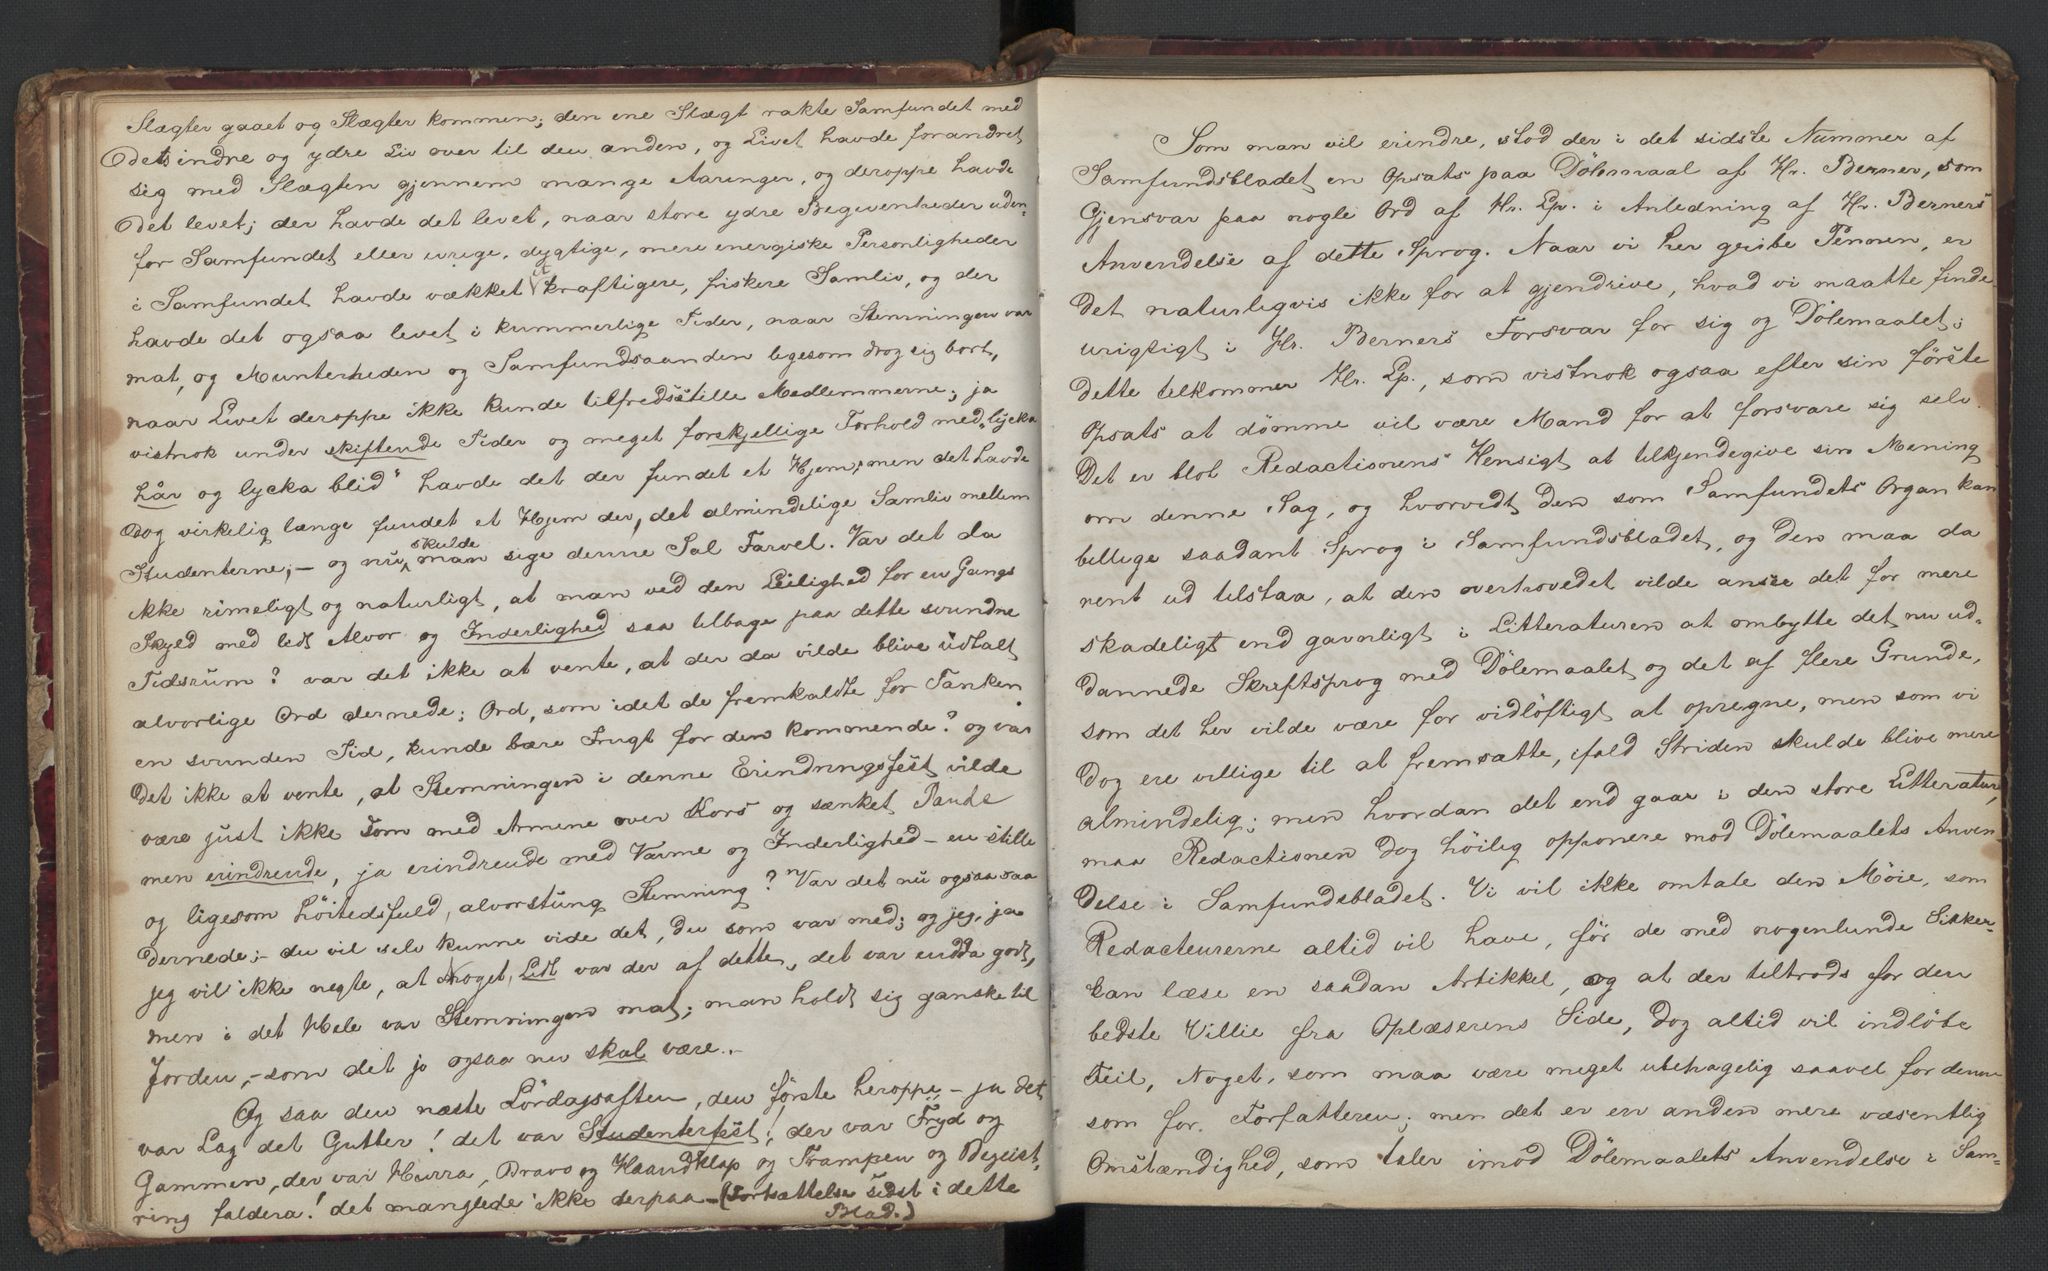 Slægter gaaet og Slægter kommen; den ene Slægt rakte Samfundet med
dets indre og ydre Liv over til den anden, og Livet havde forandret
sig med Slægten gjennem mange Aarringer, og deroppe havde
det levet; der havde det levet, naar store ydre Begivenheder uden-
for Samfundet eller ivrige, dygtige, mere energiske Personligheder
i Samfundet havde vækket et kraftigere, friskere Samliv, og der
havde det ogsaa levet i kummerlige Tider, naar Stemningen var
mat, og Munterheden og Samfundsaanden ligesom drog sig bort,
naar Livet deroppe ikke kunde tilfredsstille Medlemmerne; ja
vistnok under skiftende Tider og meget forskjellige Forhold med „lycka
hår og lycka blid“ havde det der fundet et Hjem; men det havde
dog virkelig længe fundet et Hjem der, det almindelige Samliv mellem
Studenterne; – og nu skulde man sige denne Sal Farvel. Var det da
ikke rimeligt og naturligt, at man ved den Leilighed for en Gangs
Skyld med lidt Alvor og Inderlighed saa tilbage paa dette svundne
Tidsrum? var det ikke at vente, at der da vilde blive udtalt
alvorlige Ord dernede; Ord, som idet de fremkaldte for Tanken
en svunden Tid, kunde bære Frugt for den kommende? og var
det ikke at vente, at Stemningen i denne Erindringsfest vilde
være just ikke som med Armene over Kors og sænket Pande
men erindrende, ja erindrende med Varme og Inderlighed – en stille
og ligesom høitedsfuld, alvorstung Stemning? Var det nu ogsaa saa
dernede; – du vil selv kunne vide det, du som var med; og jeg, ja
jeg vil ikke negte, at Noget, Lidt var der af dette, det var endda godt,
men i det Hele var Stemningen mat; man holdt sig ganske til
Jorden, – som det jo ogsaa nu skal være. –
Og saa den næste Lördagsaften, den förste heroppe – ja det
var Lag det Gutter! det var Studenterfest! der var Fryd og
Gammen, der var Hurra, Bravo og Haandklap og Trampen og Begeist-
ring faldera! det manglede ikke derpaa – (Fortsættelse sidst i dette
Blad.)
Som man vil erindre, stod der i det sidste Nummer af
Samfundsbladet en Opsats paa Dölemaal af Hr. Berner, som
Gjensvar paa nogle Ord af Hr. Lp. i Anledning af Hr. Berners
Anvendelse af dette Sprog. Naar vi her gribe Pennen, er
det naturligvis ikke for at gjendrive, hvad vi maatte finde
urigtigt i Hr. Berners Forsvar for sig og Dölemaalet;
dette tilkommer Hr. Lp., som vistnok ogsaa efter sin förste
Opsats at dömme vil være Mand for at forsvare sig selv.
Det er blot Redactionens Hensigt at tilkjendegive sin Mening
om denne Sag, og hvorvidt den som Samfundets Organ kan
billige saadant Sprog i Samfundsbladet, og den maa da
rent ud tilstaa, at den overhovedet vilde ansee det for mere
skadeligt end gavnligt i Litteraturen at ombytte det nu ud-
dannede Skriftsprog med Dölemaalet og det af flere Grunde,
som det her vilde være for vidlöftigt at opregne, men som vi
dog ere villige til at fremsætte, ifald Striden skulde blive mere
almindelig; men hvordan det end gaar i den store Litteratur,
maa Redactionen dog höilig opponere mod Dölemaalets Anven
delse i Samfundsbladet. Vi vil ikke omtale den Möie, som
Redacteurerne altid vil have, för de med nogenlunde Sikker-
kan læse en saadan Artikkel, og at der tiltrods for den
bedste Villie fra Oplæserens Side, dog altid vil indlöbe
Feil, Noget, som maa være meget ubehagelig saavel for denne
som for Forfatteren; men det er en anden mere væsentlig
Omstændighed, som taler imod Dölemaalets Anvendelse i Sam-